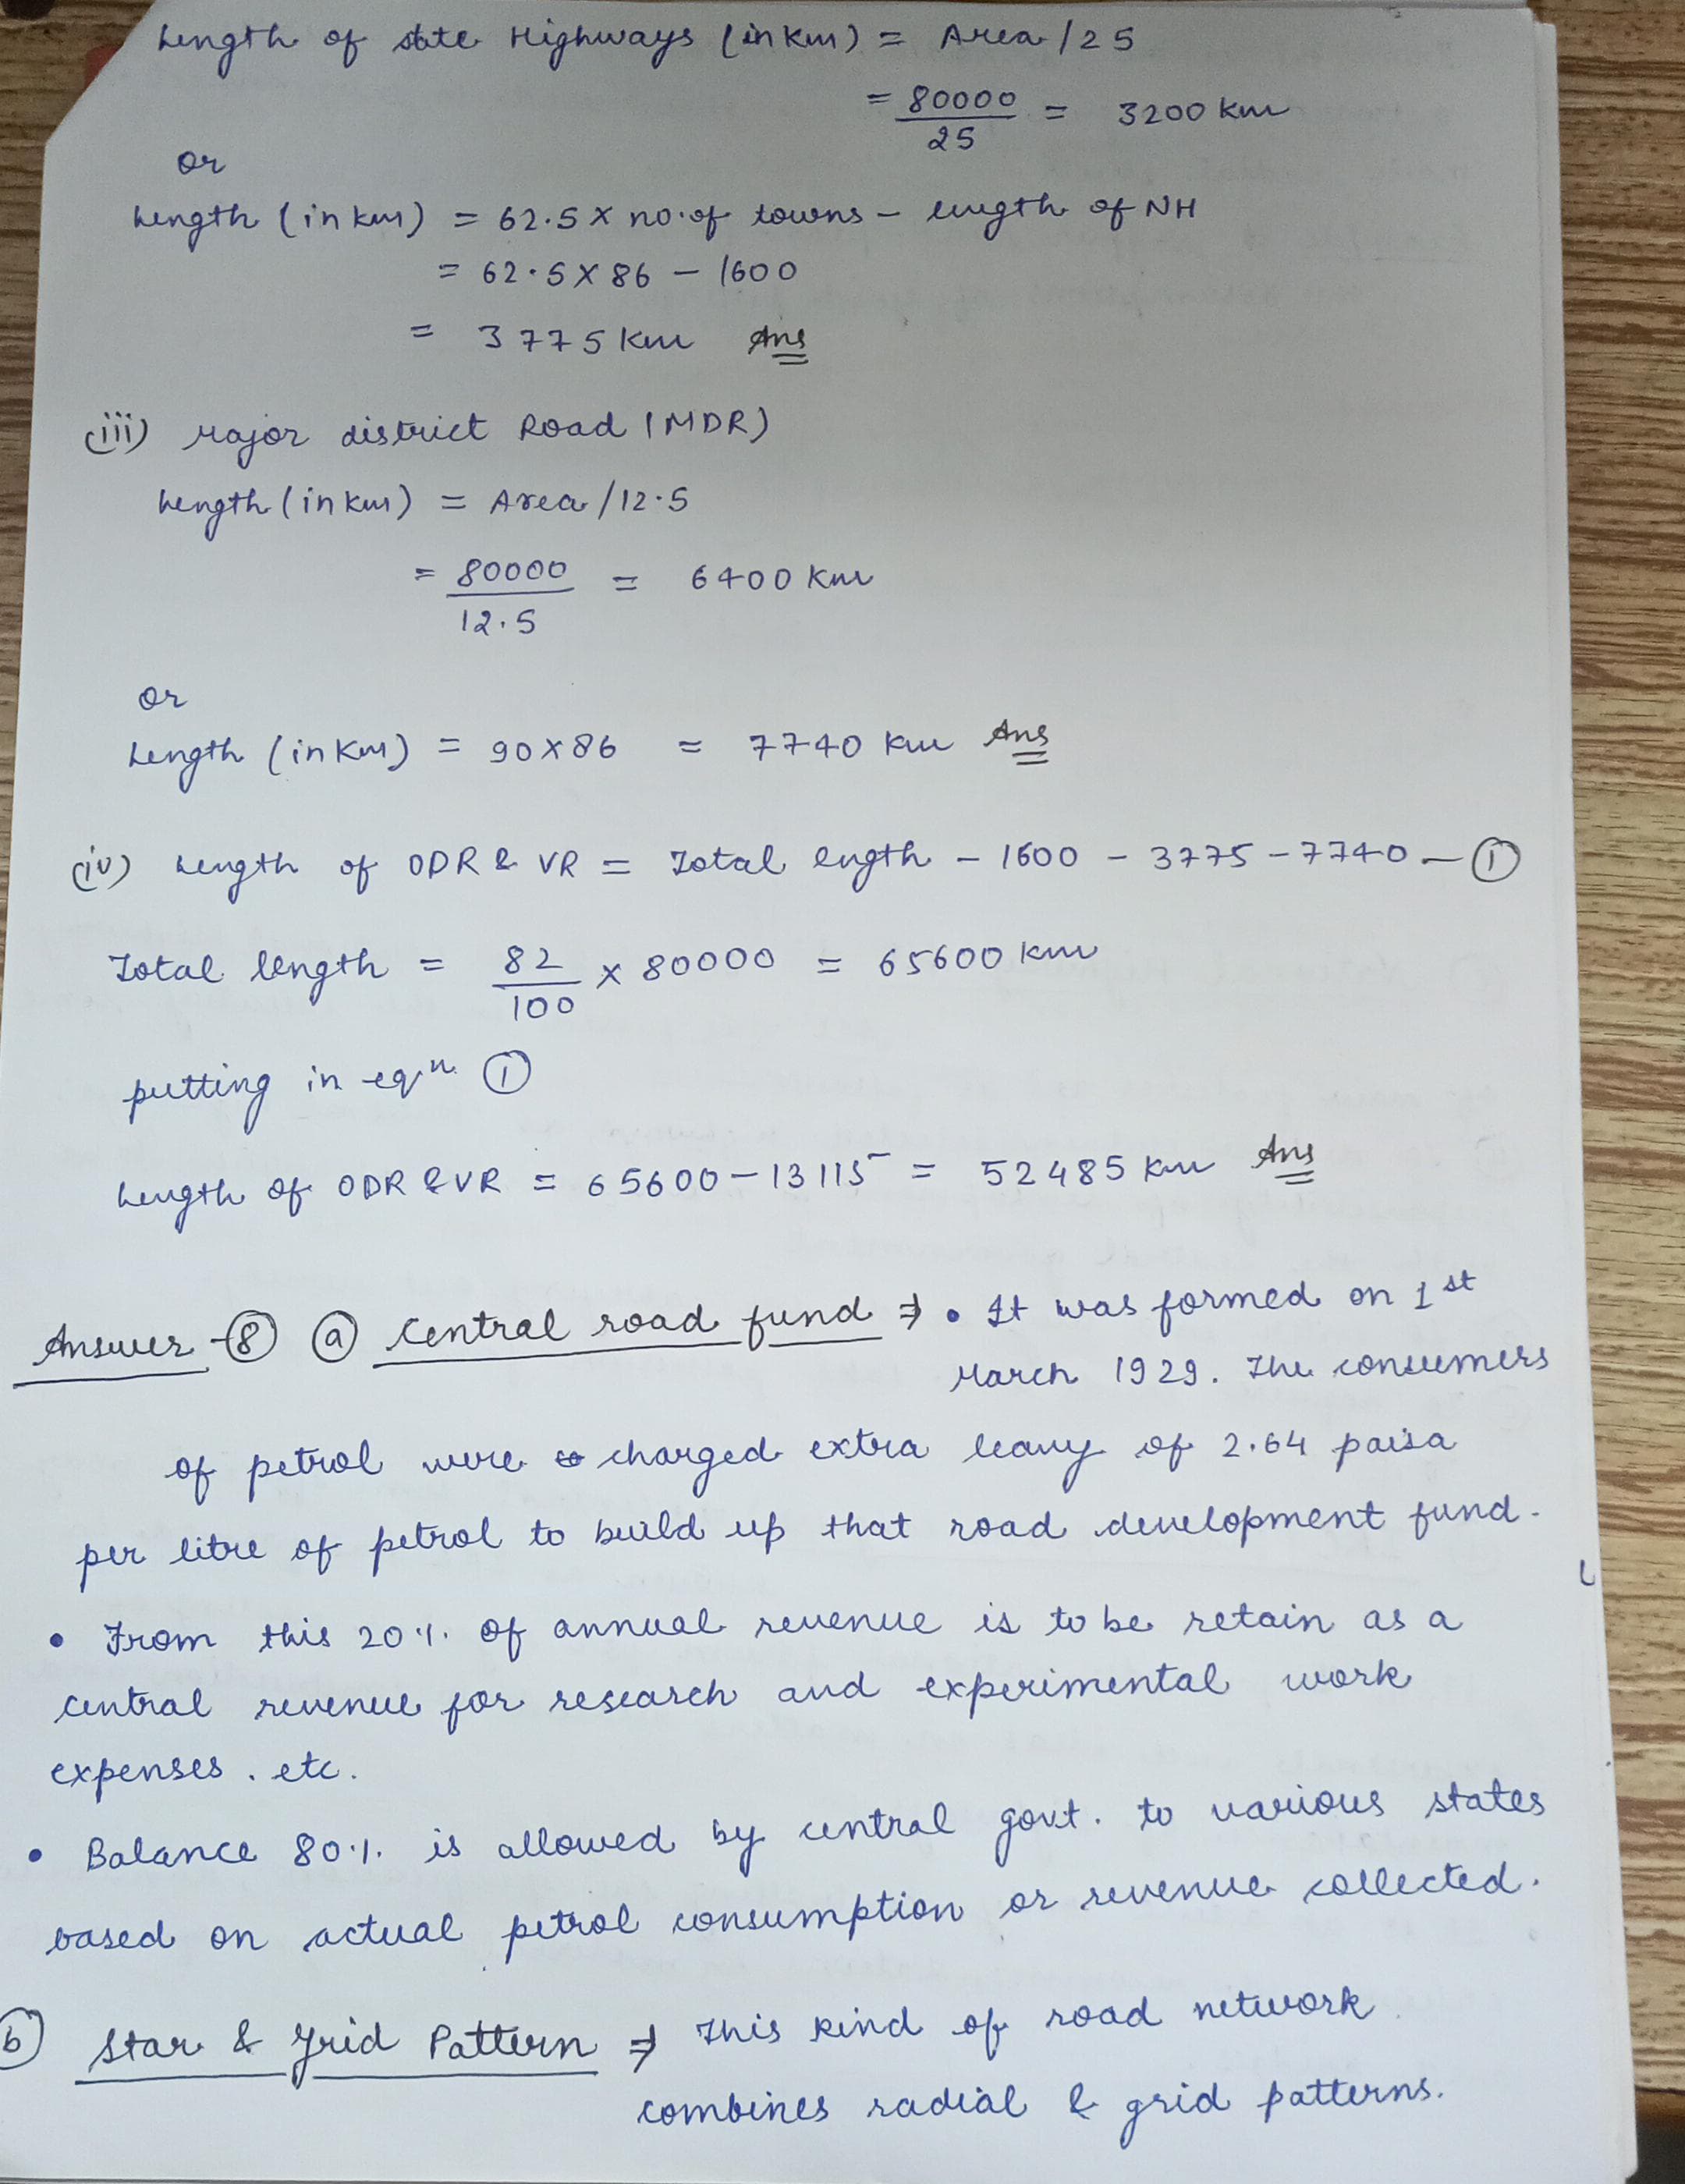 Length of state Highways (in km) = Area /25
= 80000/25 = 3200 km
or
Length (in km) = 62.5 x no. of towns - length of NH
= 62.5 x 86 - 1600
= 3775 km Ans
(iii) Major district Road (MDR)
Length (in km) = Area /12.5
= 80000/12.5 = 6400 km
or
Length (in Km) = 90 x 86 = 7740 km Ans
(iv) Length of ODR & VR = Total ength - 1600 - 3775 - 7740 - ①
Total length = 82/100 x 80000 = 65600 km
putting in eqn. ①
Length of ODR & VR = 65600 - 13115 = 52485 km Ans
Answer - ⑧ ⓐ Central road fund ⇒ • It was formed on 1st
March 1929. The consumers
of petrol were charged extra leavy of 2.64 paisa
per litre of petrol to build up that road development fund.
• From this 20%. of annual revenue is to be retain as a
central revenue for research and experimental work
expenses. etc.
• Balance 80%. is allowed by central govt. to various states
based on actual petrol consumption or revenue collected.
ⓑ Star & Grid Pattern ⇒ This kind of road network
combines radial & grid patterns.